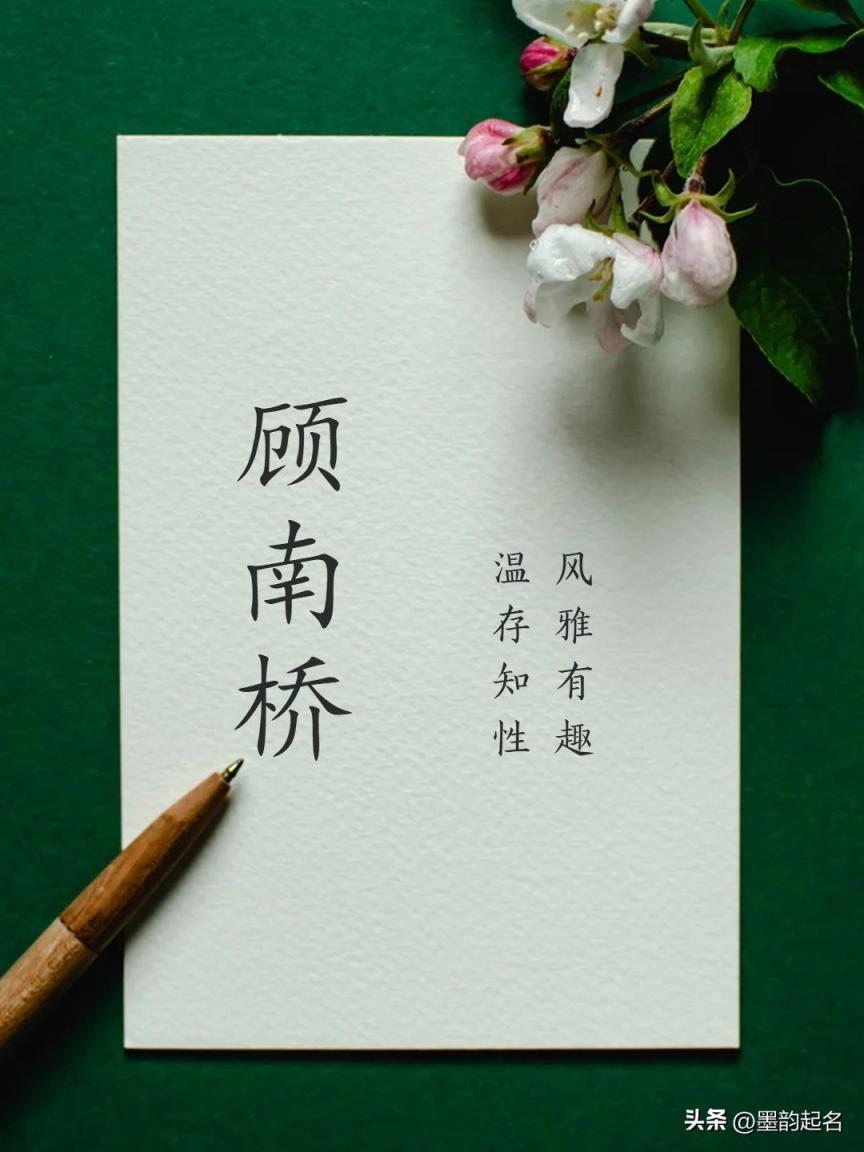 顾南桥
风雅有趣
温存知性
头条 @墨韵起名